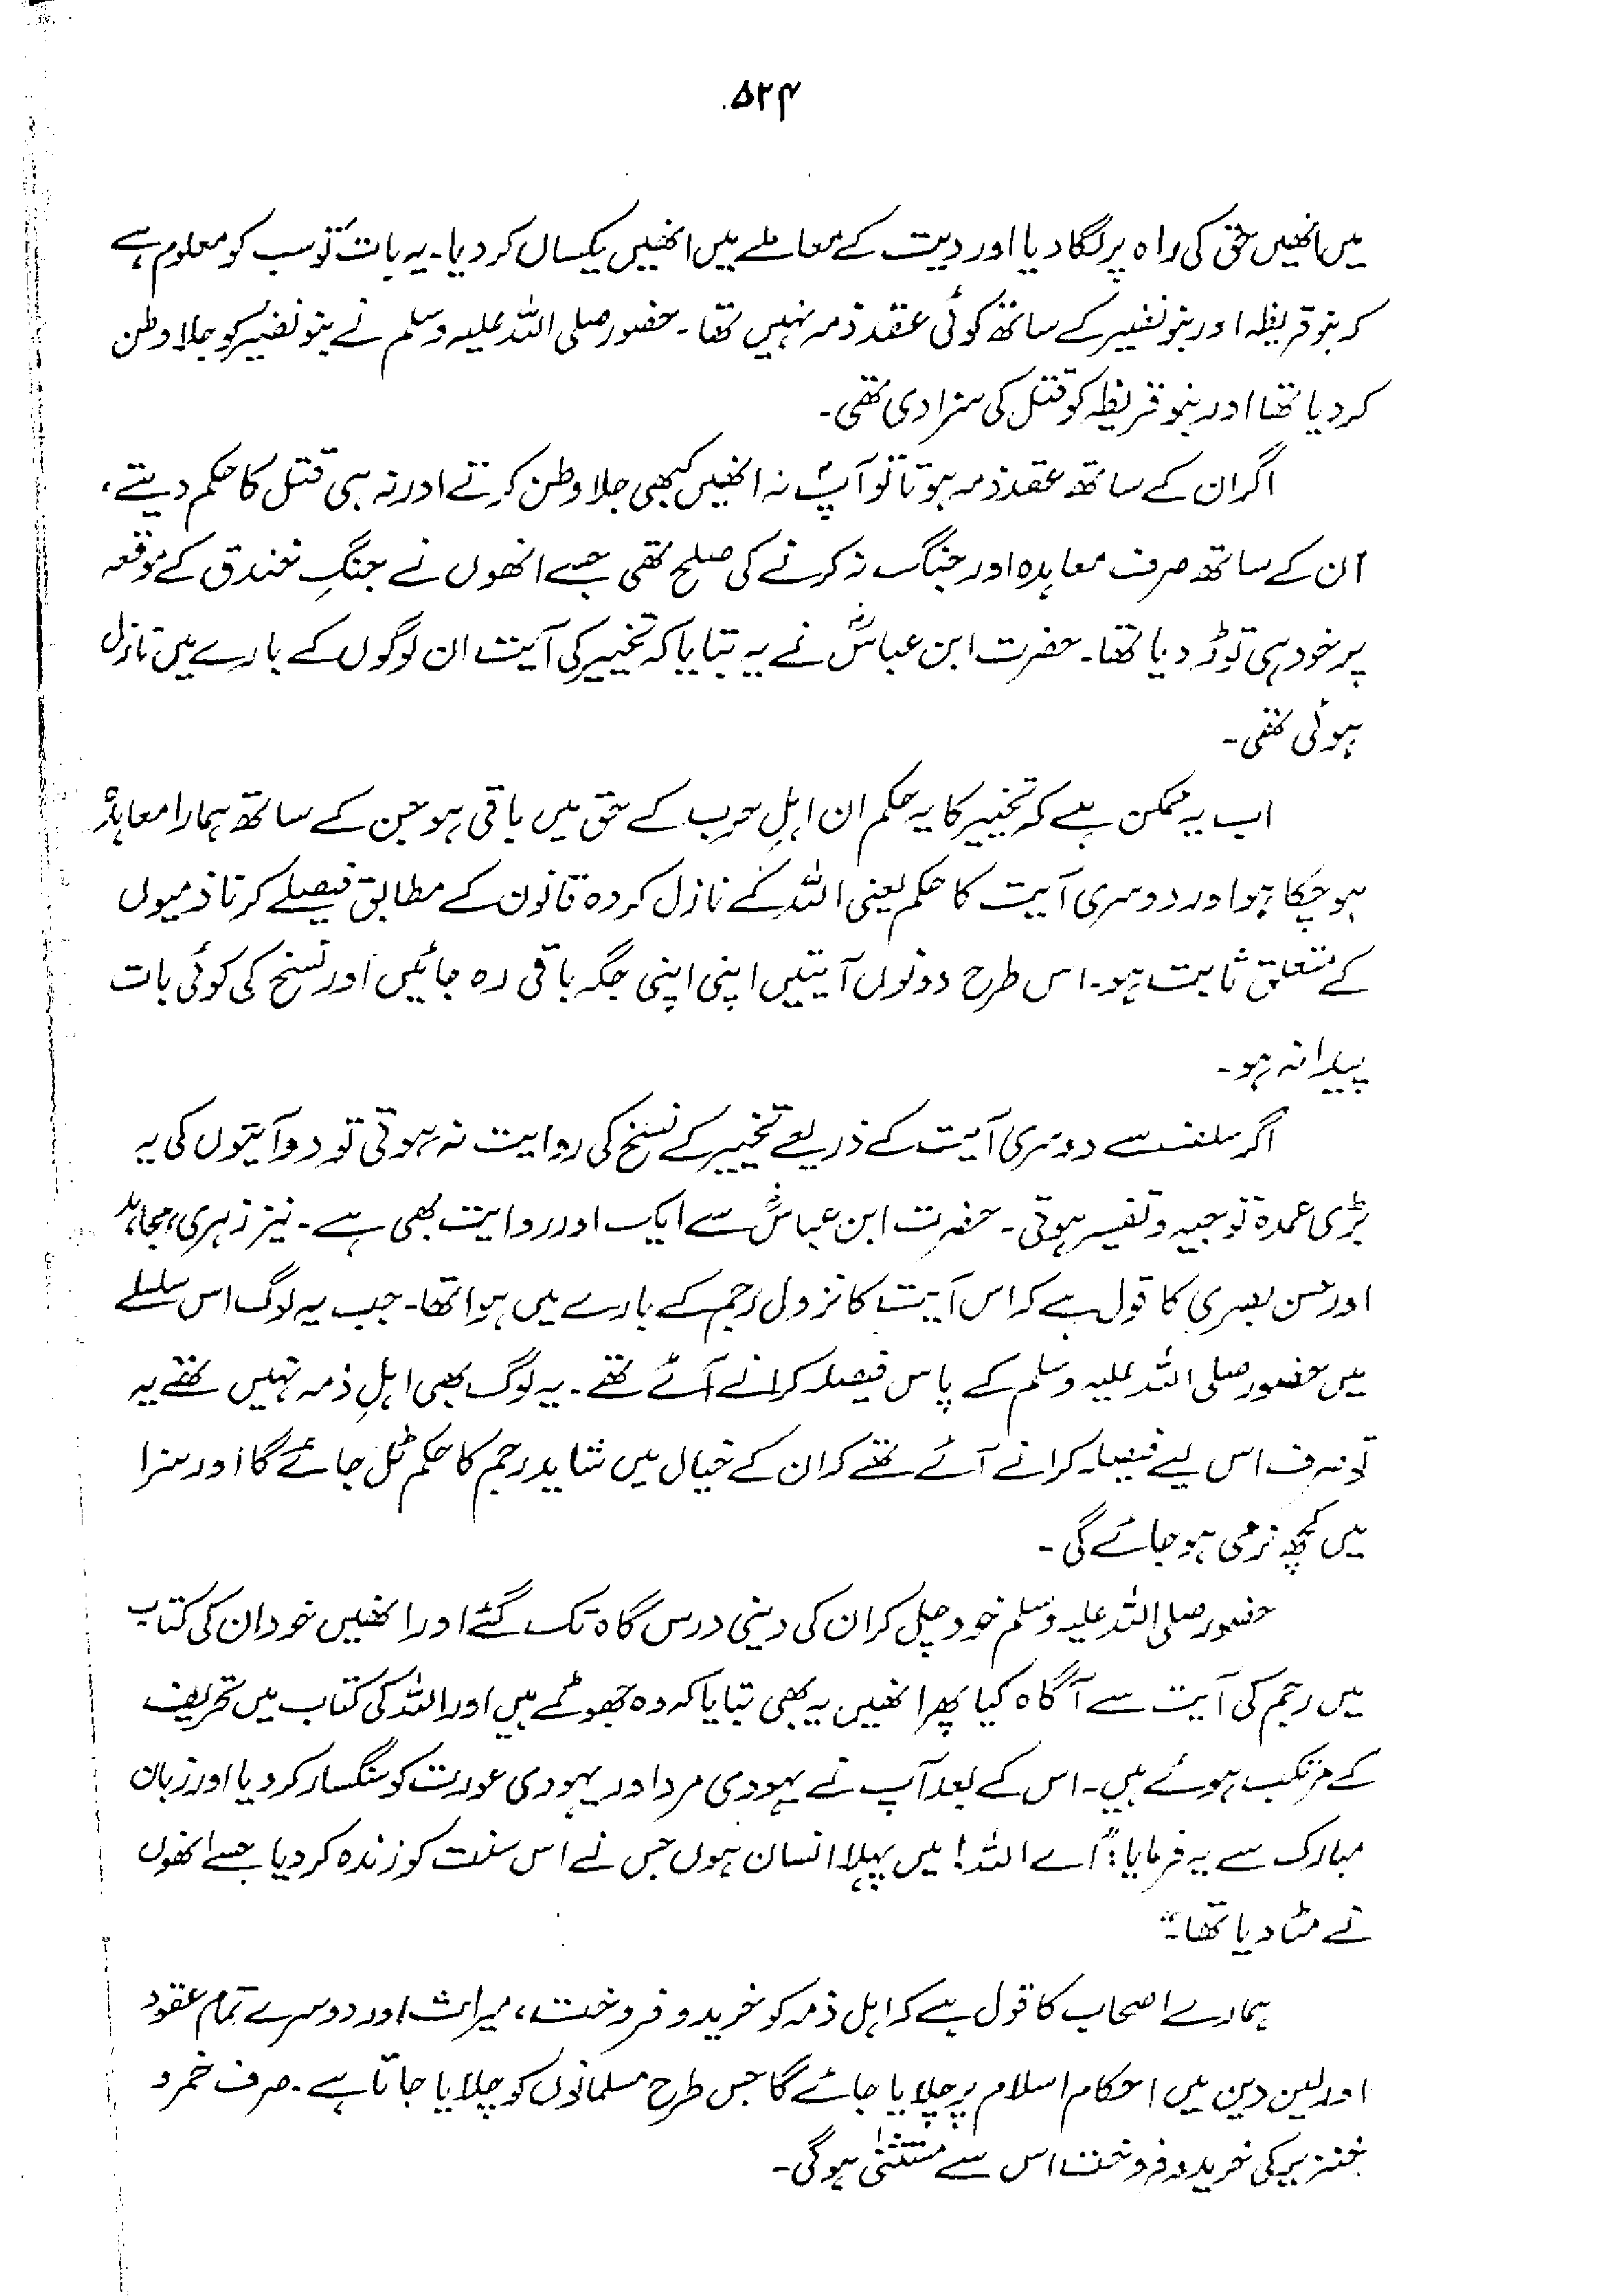 ۵۲۴
میں انھیں حق کی راہ پر لگا دیا اور دیت کے معاملے میں انھیں یکساں کر دیا۔ یہ بات تو سب کو معلوم ہے
کہ بنو قریظہ اور بنو نضیر کے ساتھ کوئی عقد ذمہ نہیں تھا۔ حضور صلی اللہ علیہ وسلم نے بنو نضیر کو جلا وطن
کر دیا تھا اور بنو قریظہ کو قتل کی سزا دی تھی۔
اگر ان کے ساتھ عقد ذمہ ہوتا تو آپؐ نہ انھیں کبھی جلا وطن کرتے اور نہ ہی قتل کا حکم دیتے،
ان کے ساتھ صرف معاہدہ اور جنگ نہ کرنے کی صلح تھی جسے انھوں نے جنگِ خندق کے موقعہ
پر خود ہی توڑ دیا تھا۔ حضرت ابن عباسؓ نے یہ بتایا کہ تخییر کی آیت ان لوگوں کے بارے میں نازل
ہوئی تھی۔
اب یہ ممکن ہے کہ تخییر کا یہ حکم ان اہلِ حرب کے حق میں باقی ہو جن کے ساتھ ہمارا معاہدہ
ہو چکا ہو اور دوسری آیت کا حکم یعنی اللہ کے نازل کردہ قانون کے مطابق فیصلے کرنا ذمیوں
کے متعلق ثابت ہو۔ اس طرح دونوں آیتیں اپنی اپنی جگہ باقی رہ جائیں اور نسخ کی کوئی بات
پیدا نہ ہو۔
اگر سلف سے دوسری آیت کے ذریعے تخییر کے نسخ کی روایت نہ ہوتی تو دو آیتوں کی یہ
بڑی عمدہ توجیہ و تفسیر ہوتی۔ حضرت ابن عباسؓ سے ایک اور روایت بھی ہے۔ نیز زہری، مجاہد
اور حسن بصری کا قول ہے کہ اس آیت کا نزول رجم کے بارے میں ہوا تھا۔ جب یہ لوگ اس سلسلے
میں حضور صلی اللہ علیہ وسلم کے پاس فیصلہ کرانے آئے تھے۔ یہ لوگ بھی اہلِ ذمہ نہیں تھے یہ
تو صرف اس لیے فیصلہ کرانے آئے تھے کہ ان کے خیال میں شاید رجم کا حکم ٹل جائے گا اور سزا
میں کچھ نرمی ہو جائے گی۔
حضور صلی اللہ علیہ وسلم خود چل کر ان کی دینی درس گاہ تک گئے اور انھیں خود ان کی کتاب
میں رجم کی آیت سے آگاہ کیا پھر انھیں یہ بھی بتایا کہ وہ جھوٹے ہیں اور اللہ کی کتاب میں تحریف
کے مرتکب ہوئے ہیں۔ اس کے بعد آپ نے یہودی مرد اور یہودی عورت کو سنگسار کر دیا اور زبان
مبارک سے یہ فرمایا: "اے اللہ! میں پہلا انسان ہوں جس نے اس سنت کو زندہ کر دیا جسے انھوں
نے مٹا دیا تھا۔"
ہمارے اصحاب کا قول ہے کہ اہل ذمہ کو خرید و فروخت، میراث اور دوسرے تمام عقود
اور لین دین میں احکام اسلام پر چلایا جائے گا جس طرح مسلمانوں کو چلایا جاتا ہے۔ صرف خمر و
خنزیر کی خرید و فروخت اس سے مستثنیٰ ہو گی۔